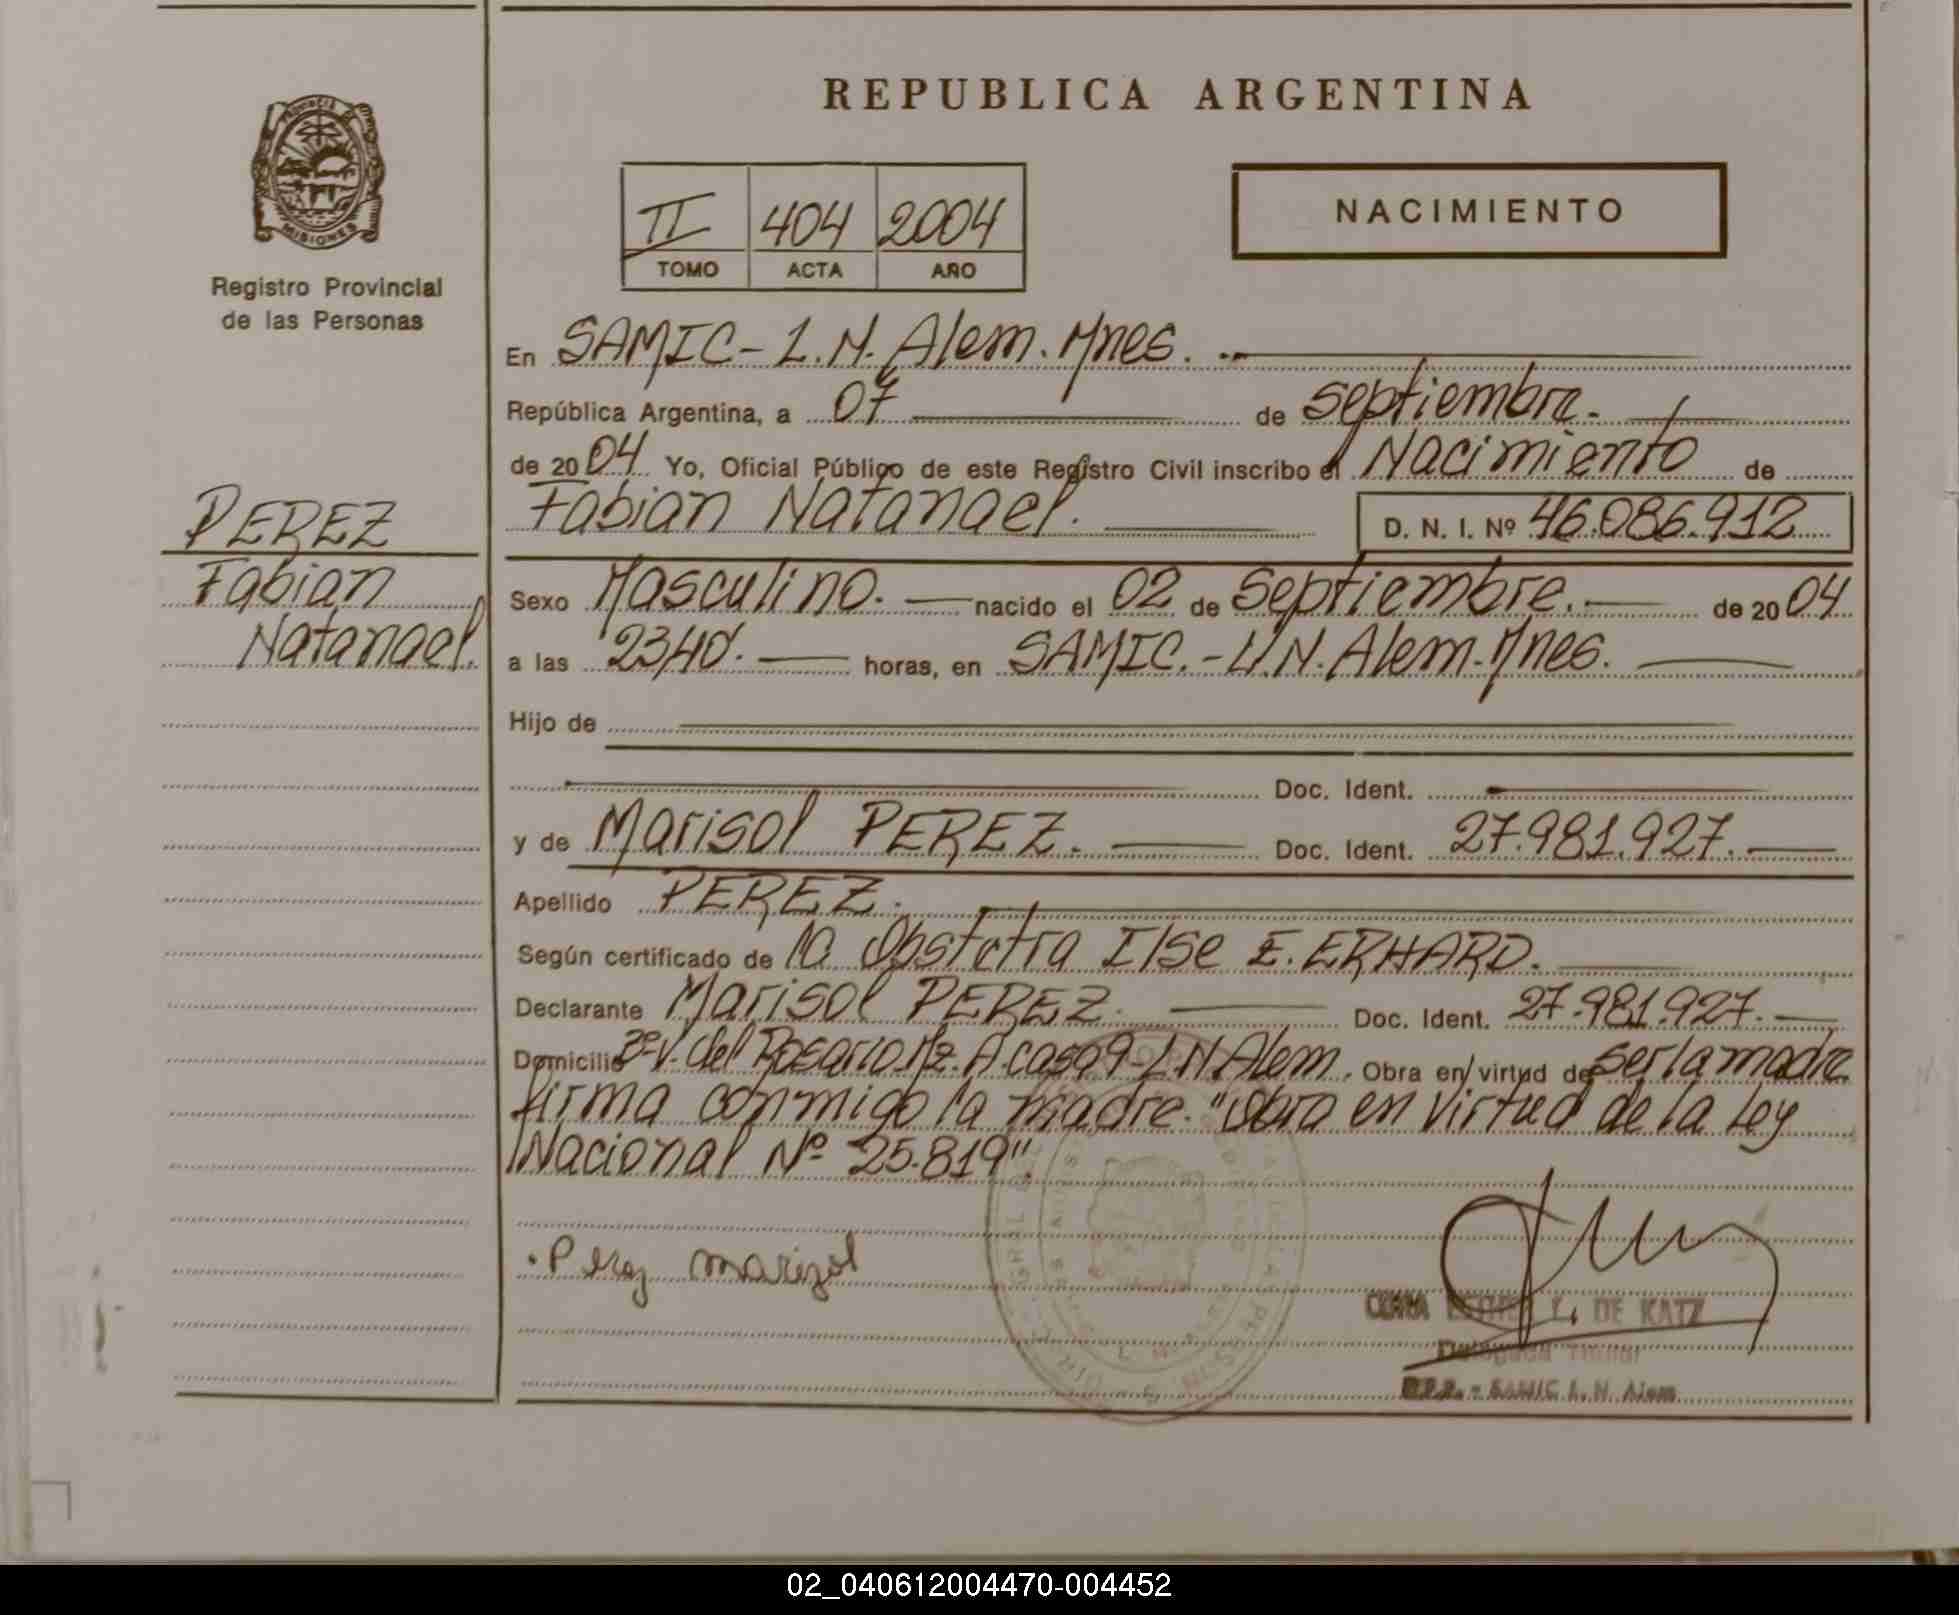 REPUBLICA ARGENTINA
PROVINCIA DE
MISIONES
Registro Provincial
de las Personas
II 404 2004
TOMO ACTA AÑO
NACIMIENTO
En SAMIC- L.N. Alem. Mnes.
República Argentina, a 07 de septiembre.
de 2004 Yo, Oficial Público de este Registro Civil inscribo el Nacimiento de
Fabian Natanael. D. N. I. Nº 46.086.912
PEREZ
Fabian
Natanael.
Sexo Masculino. nacido el 02 de Septiembre. de 2004
a las 23,40. horas, en SAMIC.- L.N. Alem. Mnes.
Hijo de
Doc. Ident.
y de Marisol PEREZ. Doc. Ident. 27.981.927.
Apellido PEREZ.
Según certificado de la Obstetra Ilse E. ERHARD.
Declarante Marisol PEREZ. Doc. Ident. 27.981.927.
Domicilio Bº V. del Rosario Mz. A. casa 9- L.N. Alem. Obra en virtud de ser la madre
firma conmigo la madre. "Obra en virtud de la Ley
Nacional Nº 25.819".
Perez marizol
Y. DE KATZ
Delegada Titular
R.P.P. - SAMIC L. N. Alem
02_040612004470-004452